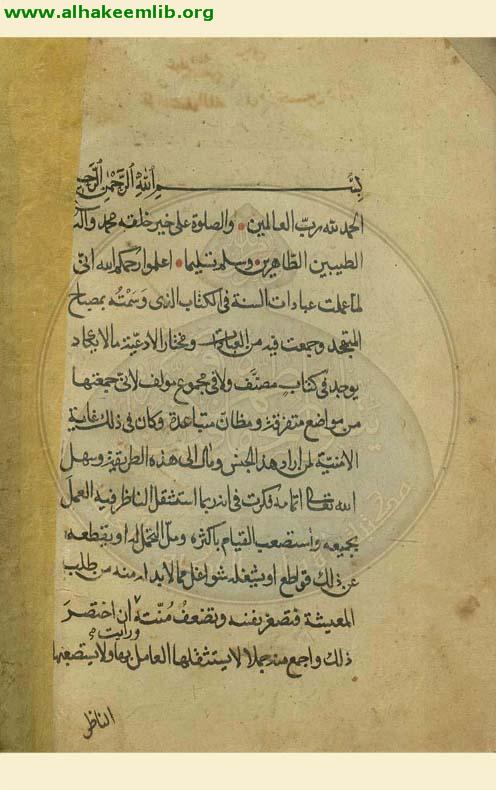 www.alhakeemlib.org
بسم الله الرحمن الرحيم
الحمد لله رب العالمين والصلوة على خير خلقه محمد وآله
الطيبين الطاهرين وسلم تسليما اعلموا رحمكم الله انى
لما عملت عبادات السنة فى الكتاب الذى وسمته بمصباح
المتهجد وجمعت فيه من العبادات ومختار الادعية مالا يكاد
يوجد فى كتاب مصنف ولا فى مجموع مولف لانى جمعتها
من مواضع متفرقة ومظان متباعدة وكان فى ذلك غاية
الامنية لمن اراد هذا الجنس ومال الى هذه الطريقة وسهل
الله تعالى اتمامه فكرت فى انه ربما استثقل الناظر فيه العمل
بجميعه واستصعب القيام باكثره ومل التحمل له او يقطعه
عن ذلك قواطع او يشغله شواغل مما لا بد له منه من طلب
المعيشة فتصغر نفسه وتضعف منته ورايت ان اختصر
ذلك واجمع منه جملا لا يستثقلها العامل بها ولا يستصعبها
الناظر